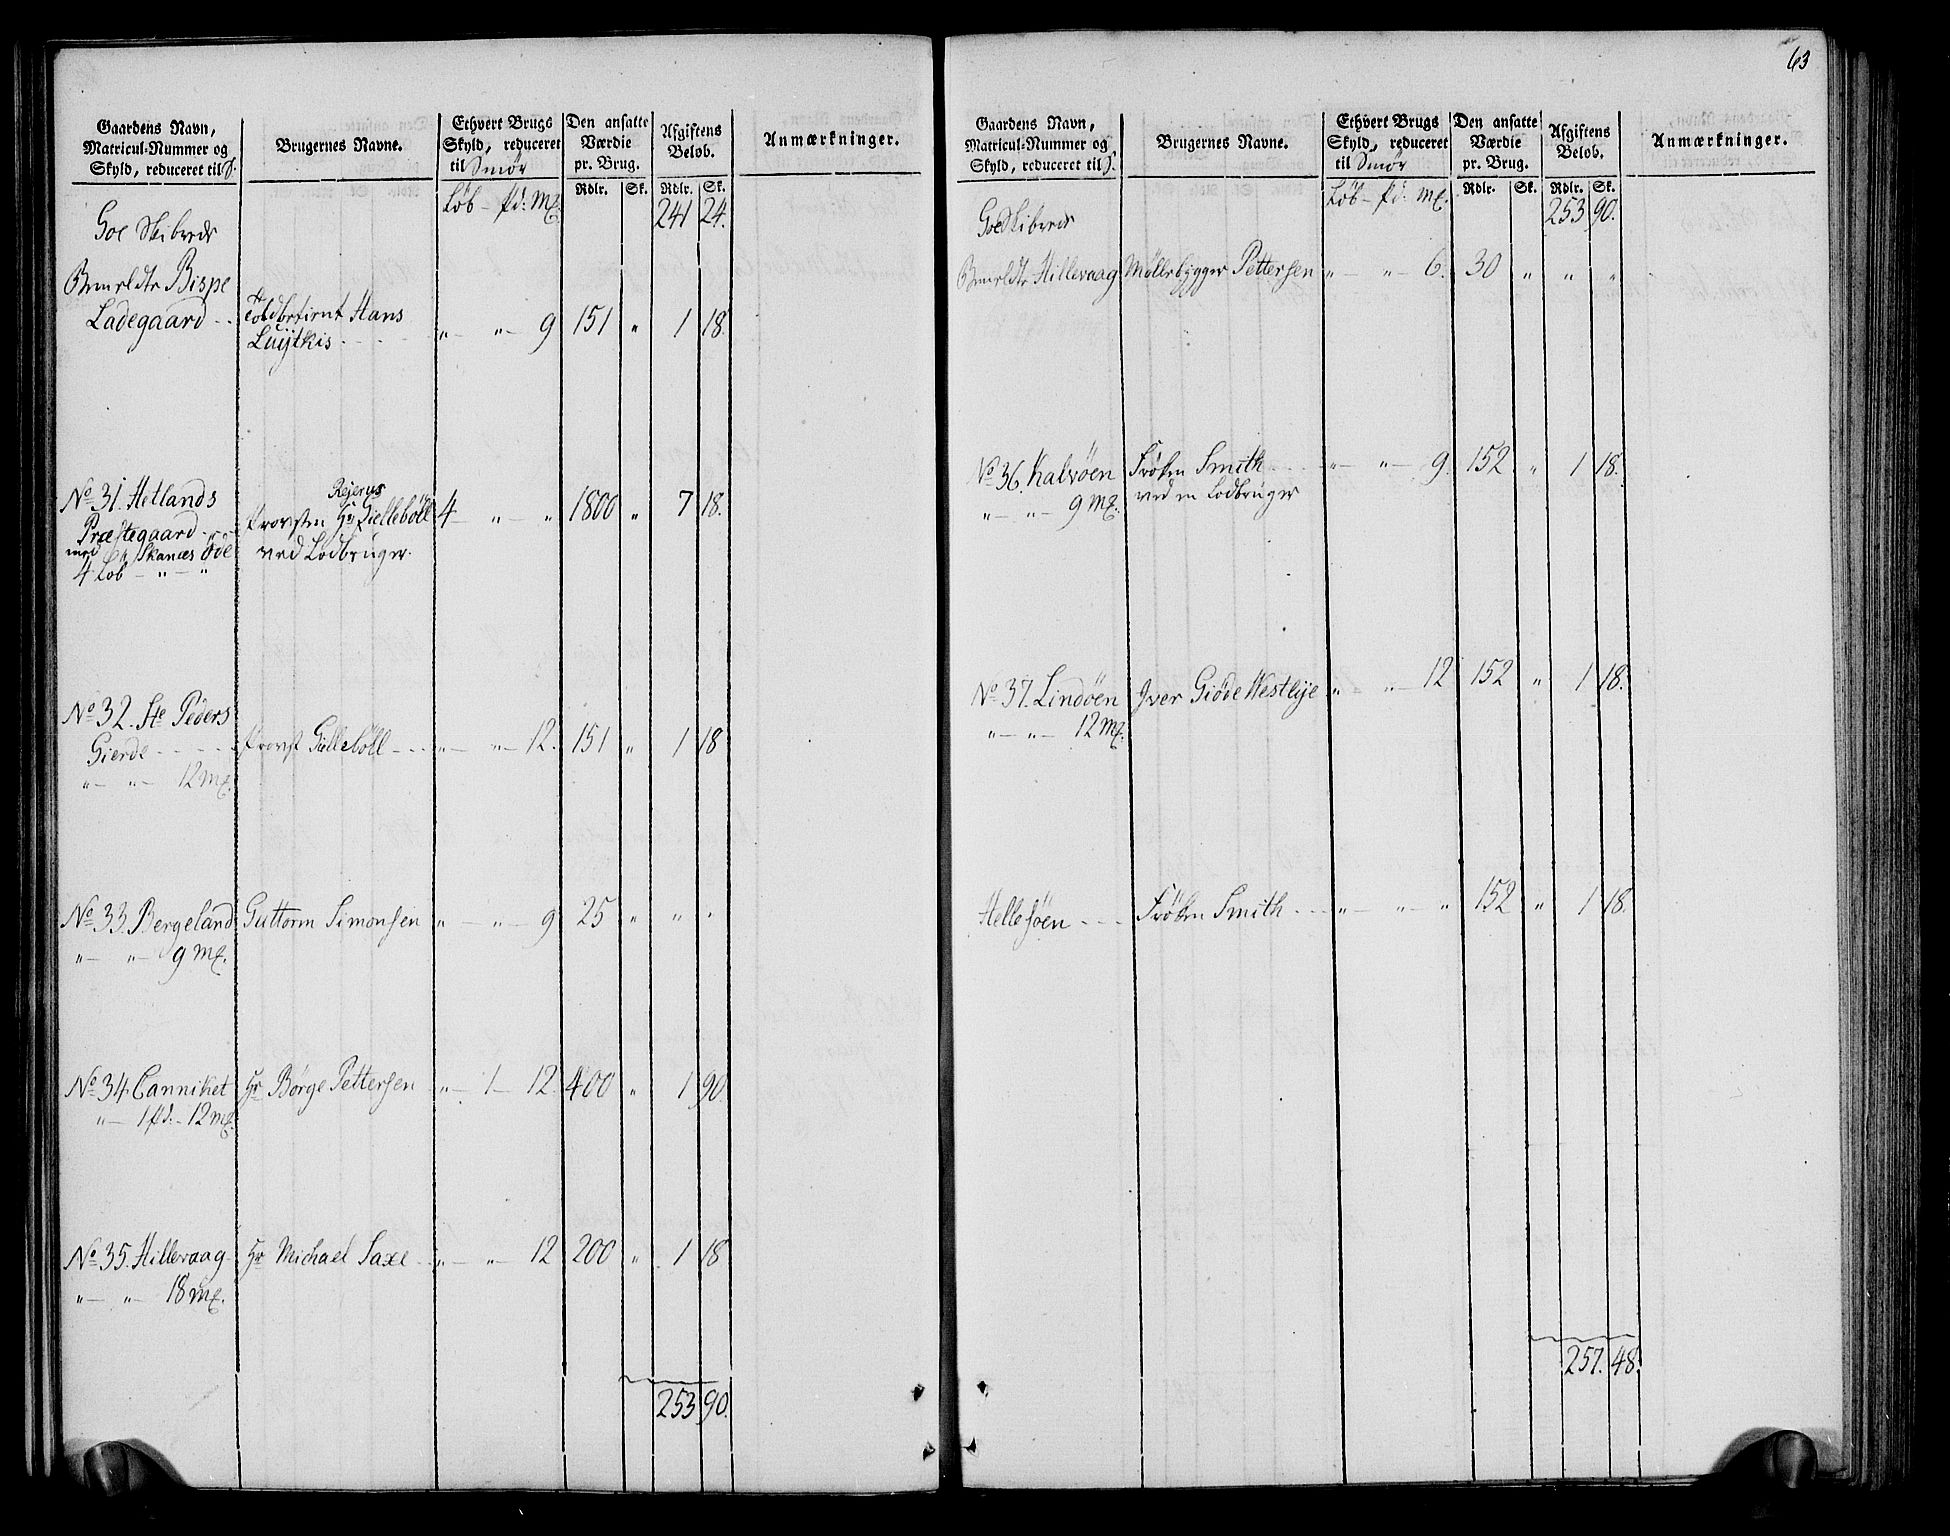 63
Gaardens Navn, Matricul-Nummer og Skyld, reduceret til S.
Brugernes Navne.
Ethvert Brugs Skyld, reduceret til Smør
Den ansatte Værdie pr. Brug.
Afgiftens Beløb.
Anmærkninger.
Rdlr. Sk. Rdlr. Sk.
Løb - pd: mk.
241 24.
Goe Skibrede
Bemeldte Bispe
Ladegaard Toldbetient Hans
Luijtkis " — " — 9 151 " 1 18.
No 31. Hetlands Rejerus
Præstegaard Provsten Hr Giellebøll 4 — " — " 1800 " 7 18.
med Skanæs øde ved Lodbruger.
4 Løb — " — "
No 32. Ste Peders
Gierde Provst Giellebøll " — " — 12. 151 " 1 18
" — " — 12 mk.
No 33. Bergeland Guttorm Simonsen " — " — 9 25 " " "
" — " — 9 mk.
No 34. Canniket Hr Børge Pettersen " — 1 — 12. 400 " 1 90.
" — 1 pd: — 12 mk.
No 35. Hillevaag Hr Michael Saxe " — " — 12 200 " 1 18
" — " — 18 mk.
253 90.
Gaardens Navn, Matricul-Nummer og Skyld, reduceret til S.
Brugernes Navne.
Ethvert Brugs Skyld, reduceret til Smør
Den ansatte Værdie pr. Brug.
Afgiftens Beløb.
Anmærkninger.
Rdlr. Sk. Rdlr. Sk.
Løb - pd: mk.
253 90.
Goe Skibrede
Bemeldte Hillevaag Møllebygger Pettersen " — " — 6. 30 " " "
No 36. Kalvøen Frøken Smith " — " — 9. 152 " 1 18.
" — " — 9 mk. ved en Lodbruger
No 37. Lindøen Iver Giøde Westlye " — " — 12 152 " 1 18.
" — " — 12 mk.
Hellesøen Frøken Smith " — " — " 152 " 1 18.
257. 48.